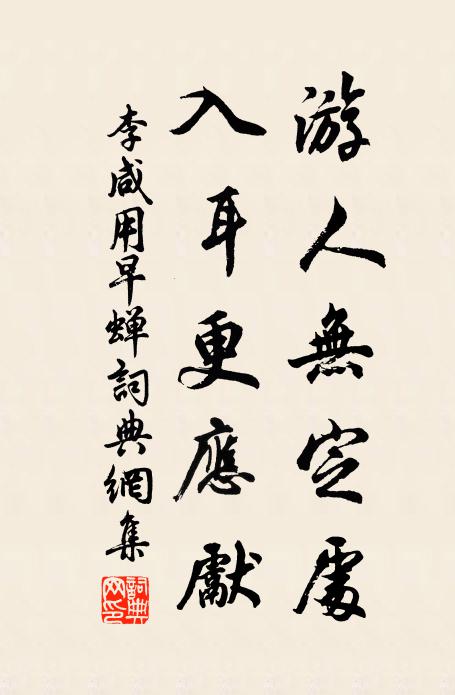 游人無定處
入耳更應獻
李咸用早蝉詞典網集
詞典网印